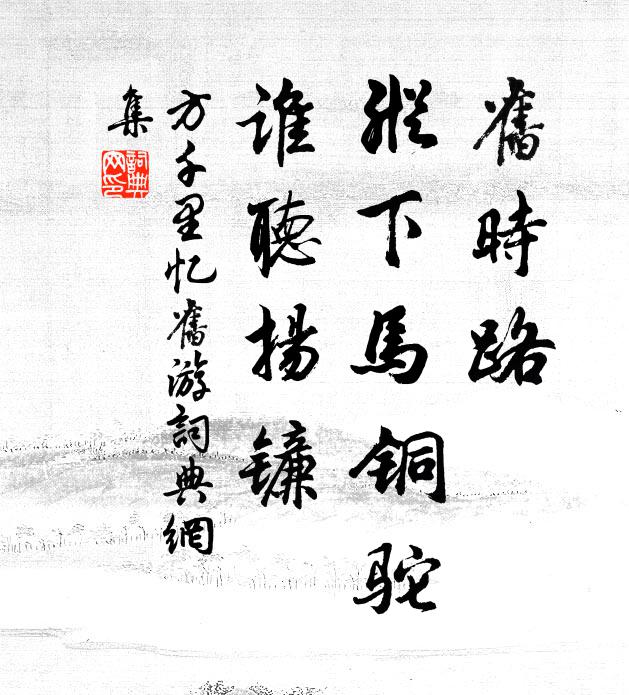 舊時路
縱下馬銅駝
誰聽揚镳
方千里忆舊游詞典網
集
詞典网印